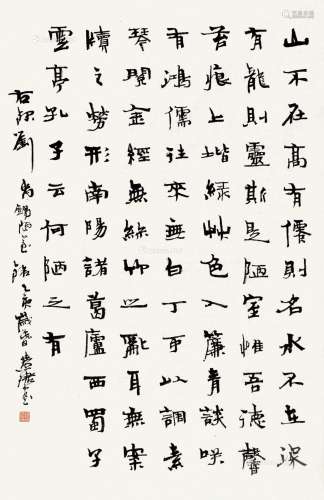 山不在高有僊則名水不在深
有龍則靈斯是陋室惟吾德馨
苔痕上堦綠艸色入簾青談咲
有鴻儒往來無白丁可以調素
琴閱金經無絲竹之亂耳無案
牘之勞形南陽諸葛廬西蜀子
雲亭孔子云何陋之有
右録劉禹錫陋室銘